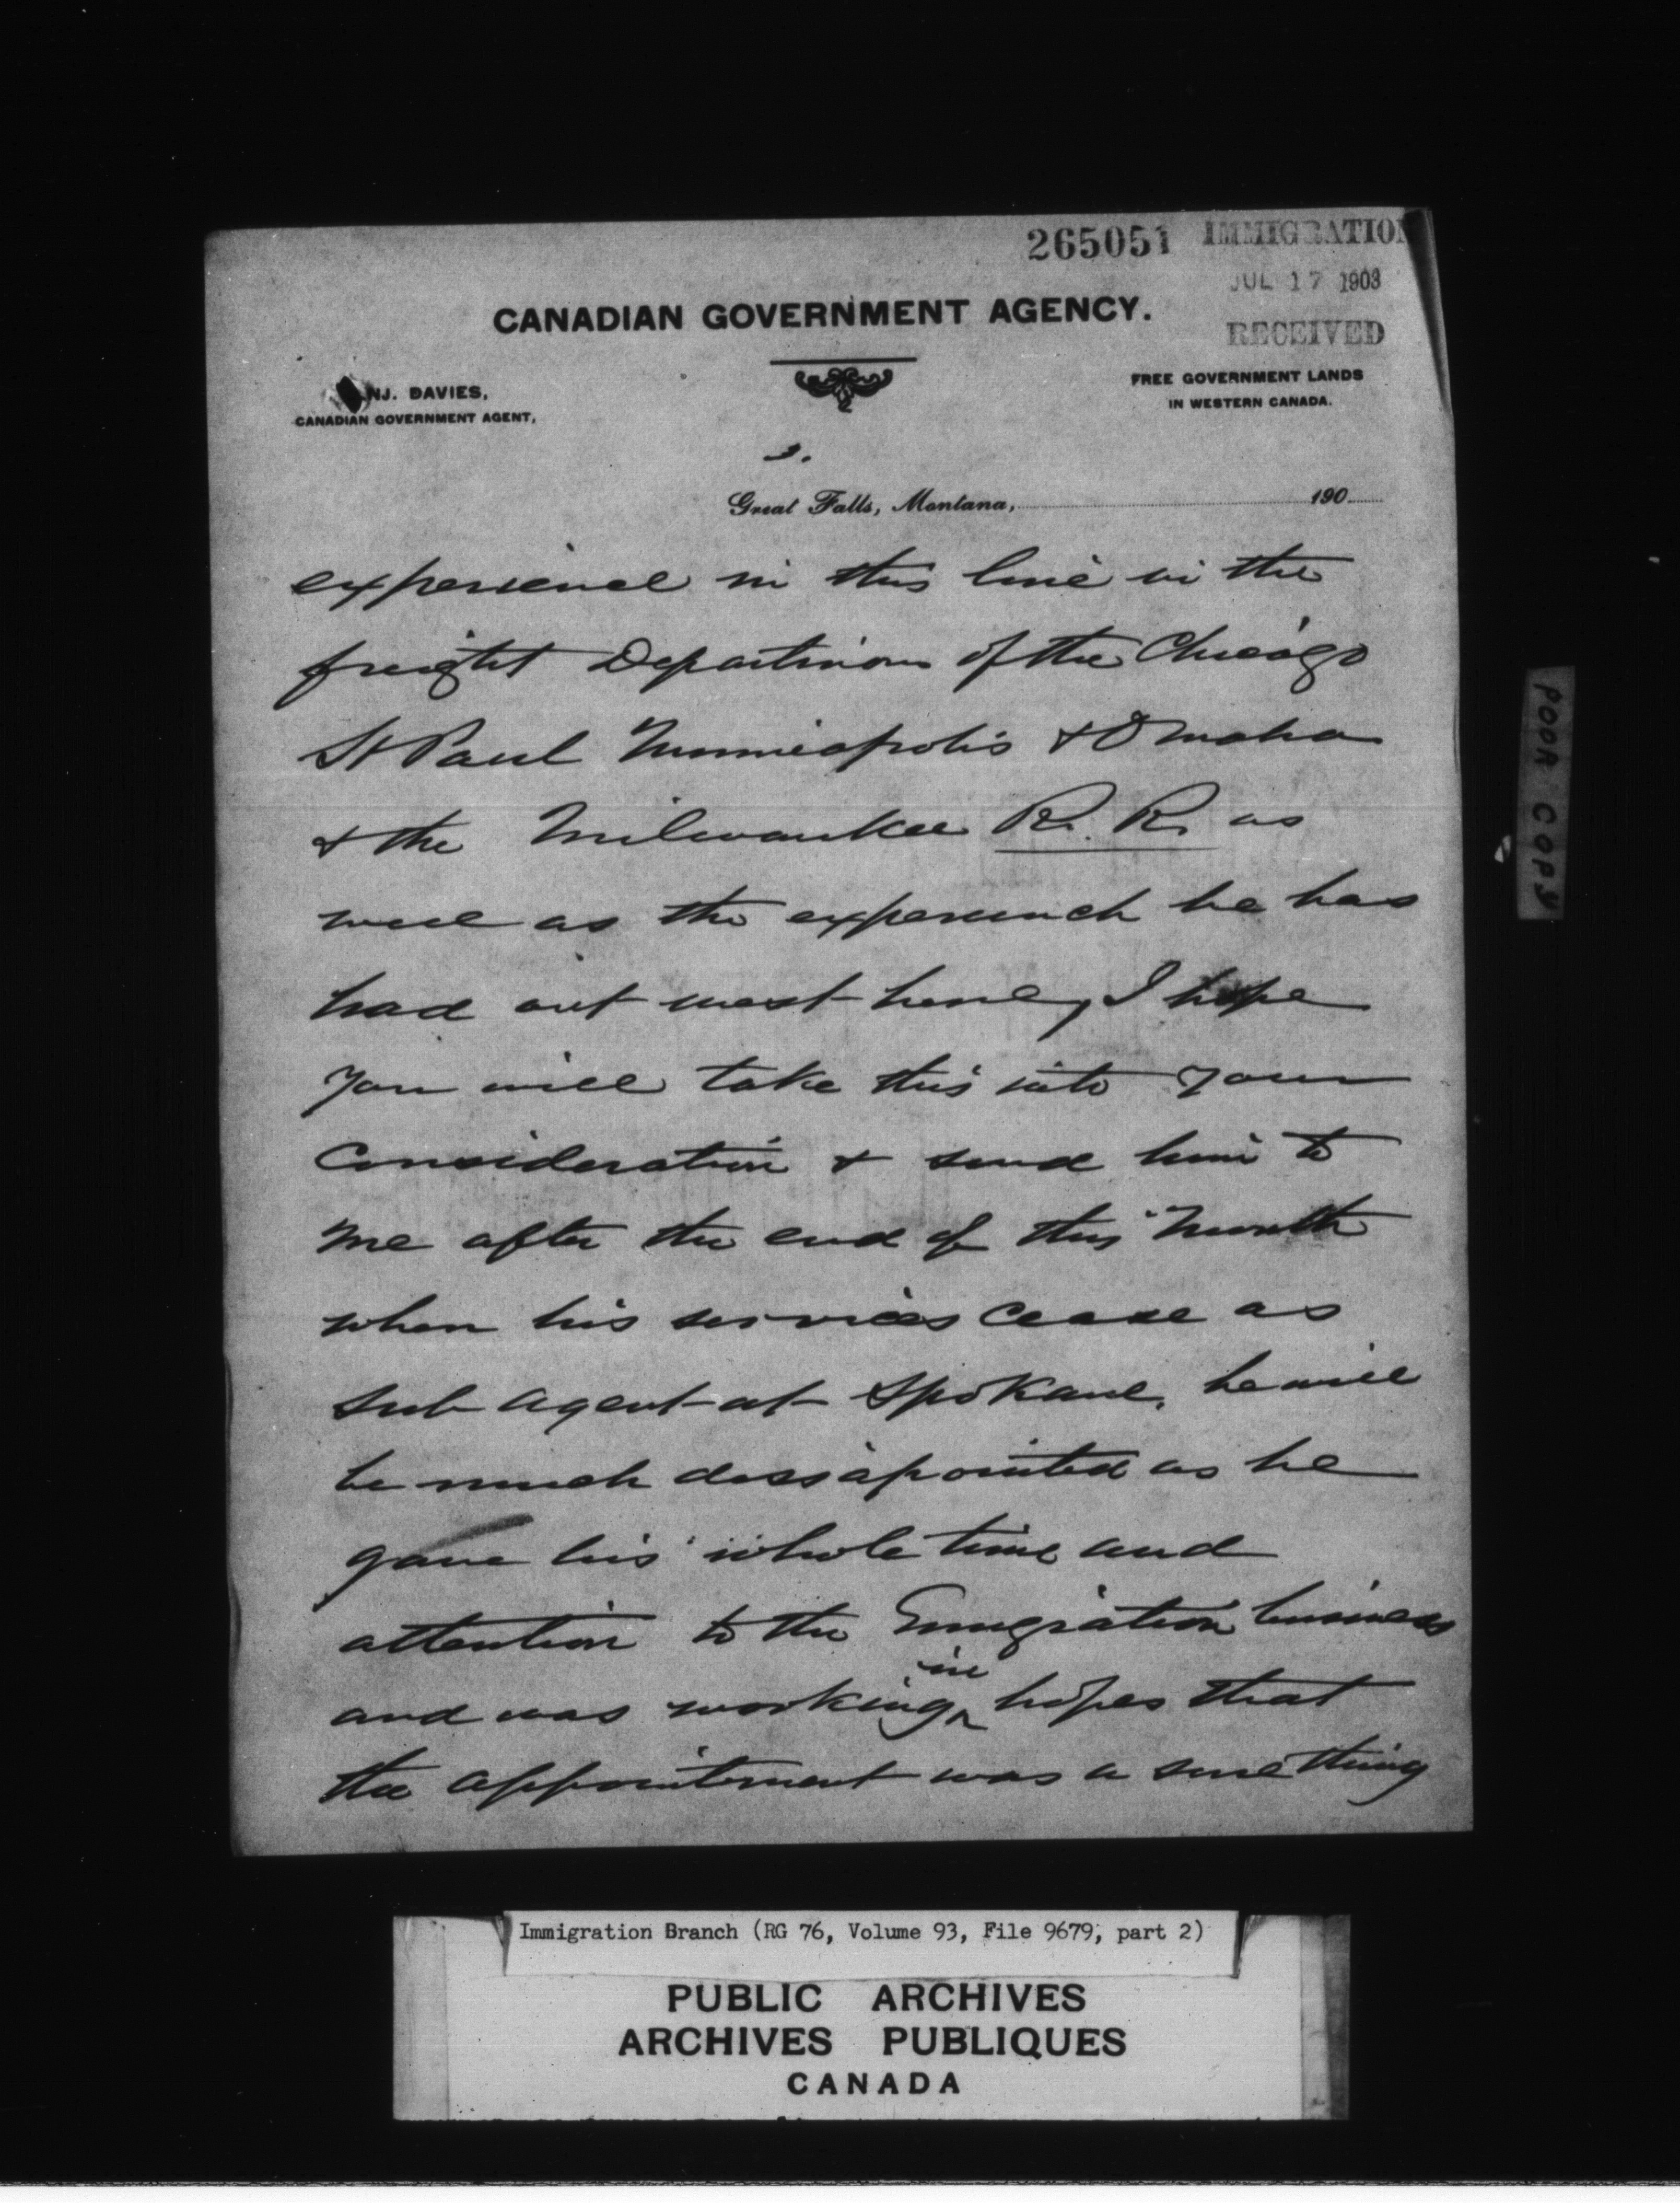 265051 IMMIGRATION
JUL 17 1903
RECEIVED
CANADIAN GOVERNMENT AGENCY.
NJ. DAVIES,
CANADIAN GOVERNMENT AGENT,
FREE GOVERNMENT LANDS
IN WESTERN CANADA.
3.
Great Falls, Montana, 190
experience in this line in the
freight Department of the Chicago
St Paul Minneapolis & Omaha
& the Milwaukee R. R. as
well as the experience he has
had out west here, I hope
you will take this into your
Consideration & send him to
me after the end of this Month
when his services cease as
sub agent at Spokane, he will
be much dissapointed as he
gave his whole time and
attention to the Emigration business
and was working in hopes that
the appointment was a sure thing
POOR COPY
Immigration Branch (RG 76, Volume 93, File 9679, part 2)
PUBLIC ARCHIVES
ARCHIVES PUBLIQUES
CANADA